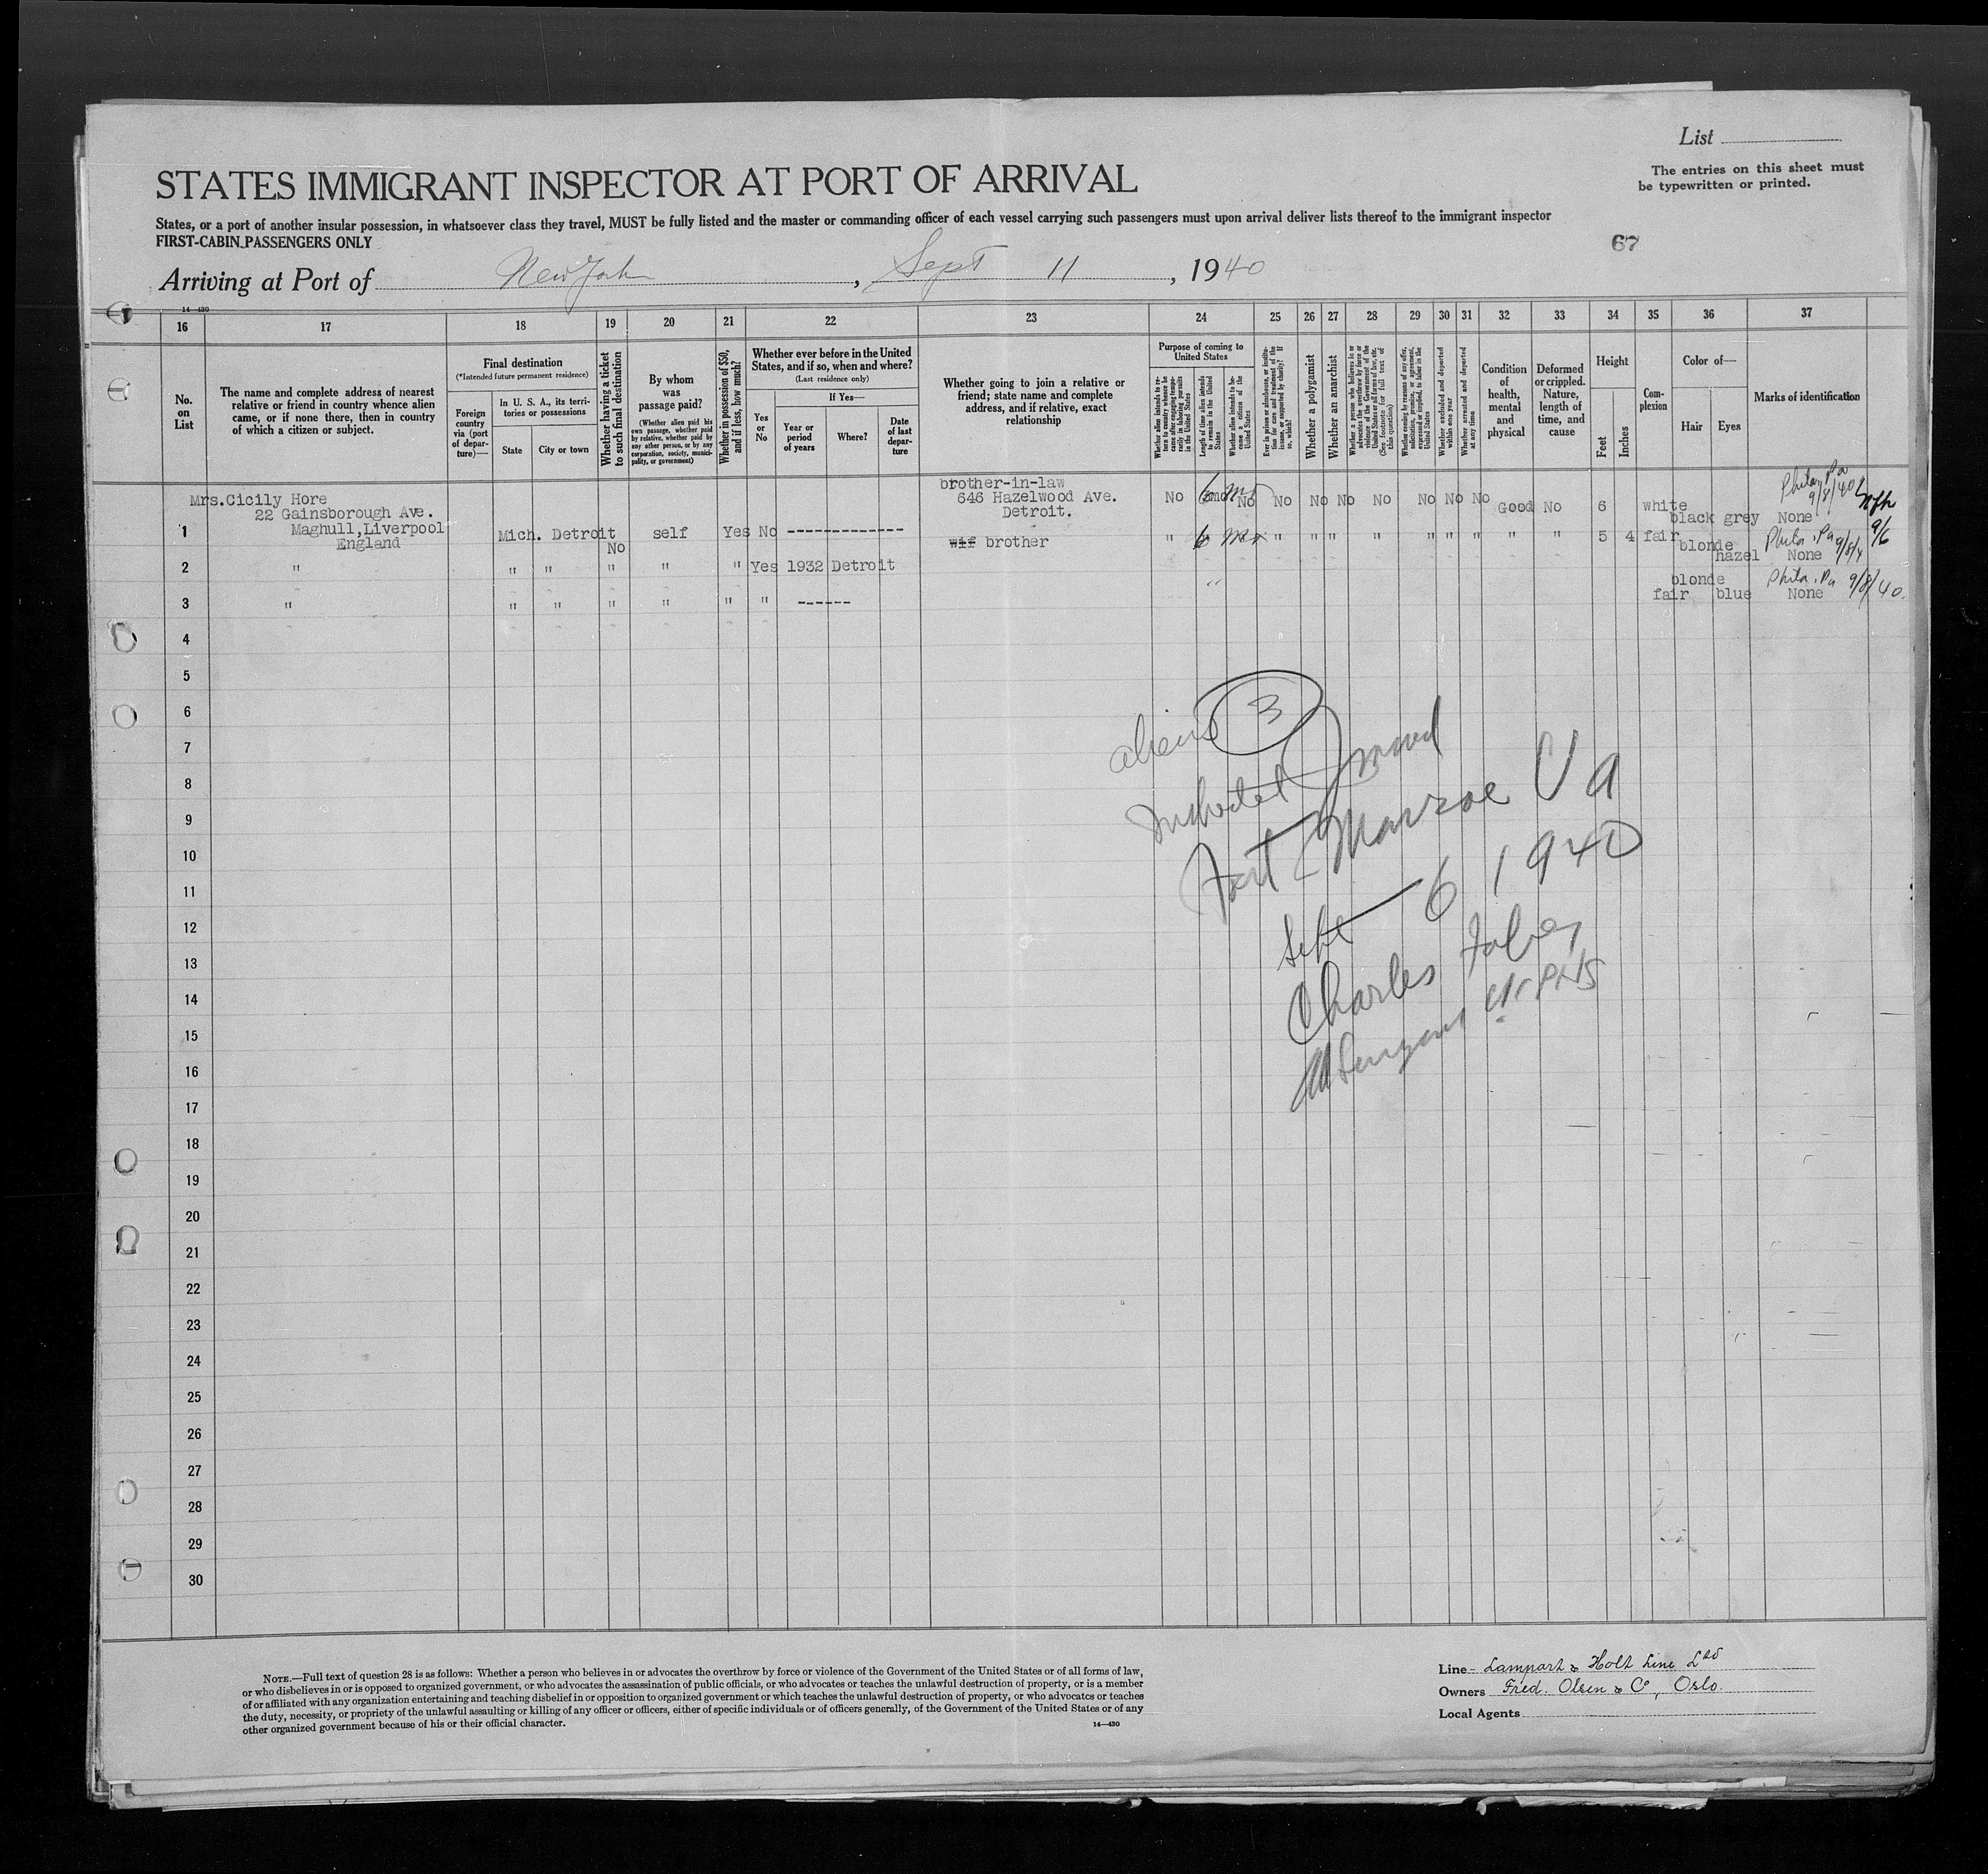 List
The entries on this sheet must
be typewritten or printed.
STATES IMMIGRANT INSPECTOR AT PORT OF ARRIVAL
States, or a port of another insular possession, in whatsoever class they travel, MUST be fully listed and the master or commanding officer of each vessel carrying such passengers must upon arrival deliver lists thereof to the immigrant inspector
FIRST-CABIN PASSENGERS ONLY
67
Arriving at Port of New York, Sept 11, 1940
14—430
16 17 18 19 20 21 22 23 24 25 26 27 28 29 30 31 32 33 34 35 36 37
No.
on
List
The name and complete address of nearest
relative or friend in country whence alien
came, or if none there, then in country
of which a citizen or subject.
Final destination
(*Intended future permanent residence)
Foreign
country
via (port
of depar-
ture)—
In U. S. A., its terri-
tories or possessions
State City or town
Whether having a ticket
to such final destination
By whom
was
passage paid?
(Whether alien paid his
own passage, whether paid
by relative, whether paid by
any other person, or by any
corporation, society, munici-
pality, or government)
Whether in possession of $50,
and if less, how much?
Whether ever before in the United
States, and if so, when and where?
(Last residence only)
Yes
or
No
If Yes—
Year or
period
of years
Where?
Date
of last
depar-
ture
Whether going to join a relative or
friend; state name and complete
address, and if relative, exact
relationship
Purpose of coming to
United States
Whether alien intends to re-
turn to country whence he
came after engaging tempo-
rarily in laboring pursuits
in the United States
Length of time alien intends
to remain in the United
States
Whether alien intends to be-
come a citizen of the
United States
Ever in prison or almshouse, or institu-
tion for care and treatment of the
insane, or supported by charity? If
so, which?
Whether a polygamist
Whether an anarchist
Whether a person who believes in or
advocates the overthrow by force or
violence of the Government of the
United States or all forms of law, etc.
(See footnote for full text of
this question)
Whether coming by reasons of any offer,
solicitation, promise, or agreement,
expressed or implied, to labor in the
United States
Whether excluded and deported
within one year
Whether arrested and deported
at any time
Condition
of
health,
mental
and
physical
Deformed
or crippled.
Nature,
length of
time, and
cause
Height
Feet Inches
Com-
plexion
Color of—
Hair Eyes
Marks of identification
Mrs.Cicily Hore
22 Gainsborough Ave.
Maghull,Liverpool
England
1 Mich. Detroit No self Yes No -------------
brother-in-law
646 Hazelwood Ave.
Detroit.
No 6 No No No No No No No No Good No 6 white black grey None
Phila, Pa 9/8/40
9/6
2 " " " " " " Yes 1932 Detroit
wif brother
" 6 " " " " " " " " " 5 4 fair blonde hazel None
Phila. Pa 9/8/4
3 " " " " " " " ------
" fair blonde blue None
Phila. Pa 9/8/40.
4
5
6
7
8
9
10
11
12
13
14
15
16
17
18
19
20
21
22
23
24
25
26
27
28
29
30
aliens 3
Fort Monroe Va
Sept 6 1940
Charles
NOTE.—Full text of question 28 is as follows: Whether a person who believes in or advocates the overthrow by force or violence of the Government of the United States or of all forms of law,
or who disbelieves in or is opposed to organized government, or who advocates the assassination of public officials, or who advocates or teaches the unlawful destruction of property, or is a member
of or affiliated with any organization entertaining and teaching disbelief in or opposition to organized government or which teaches the unlawful destruction of property, or who advocates or teaches
the duty, necessity, or propriety of the unlawful assaulting or killing of any officer or officers, either of specific individuals or of officers generally, of the Government of the United States or of any
other organized government because of his or their official character.
14—430
Line- Lamport & Holt Line Ltd
Owners Fred. Olsen & Co, Oslo.
Local Agents